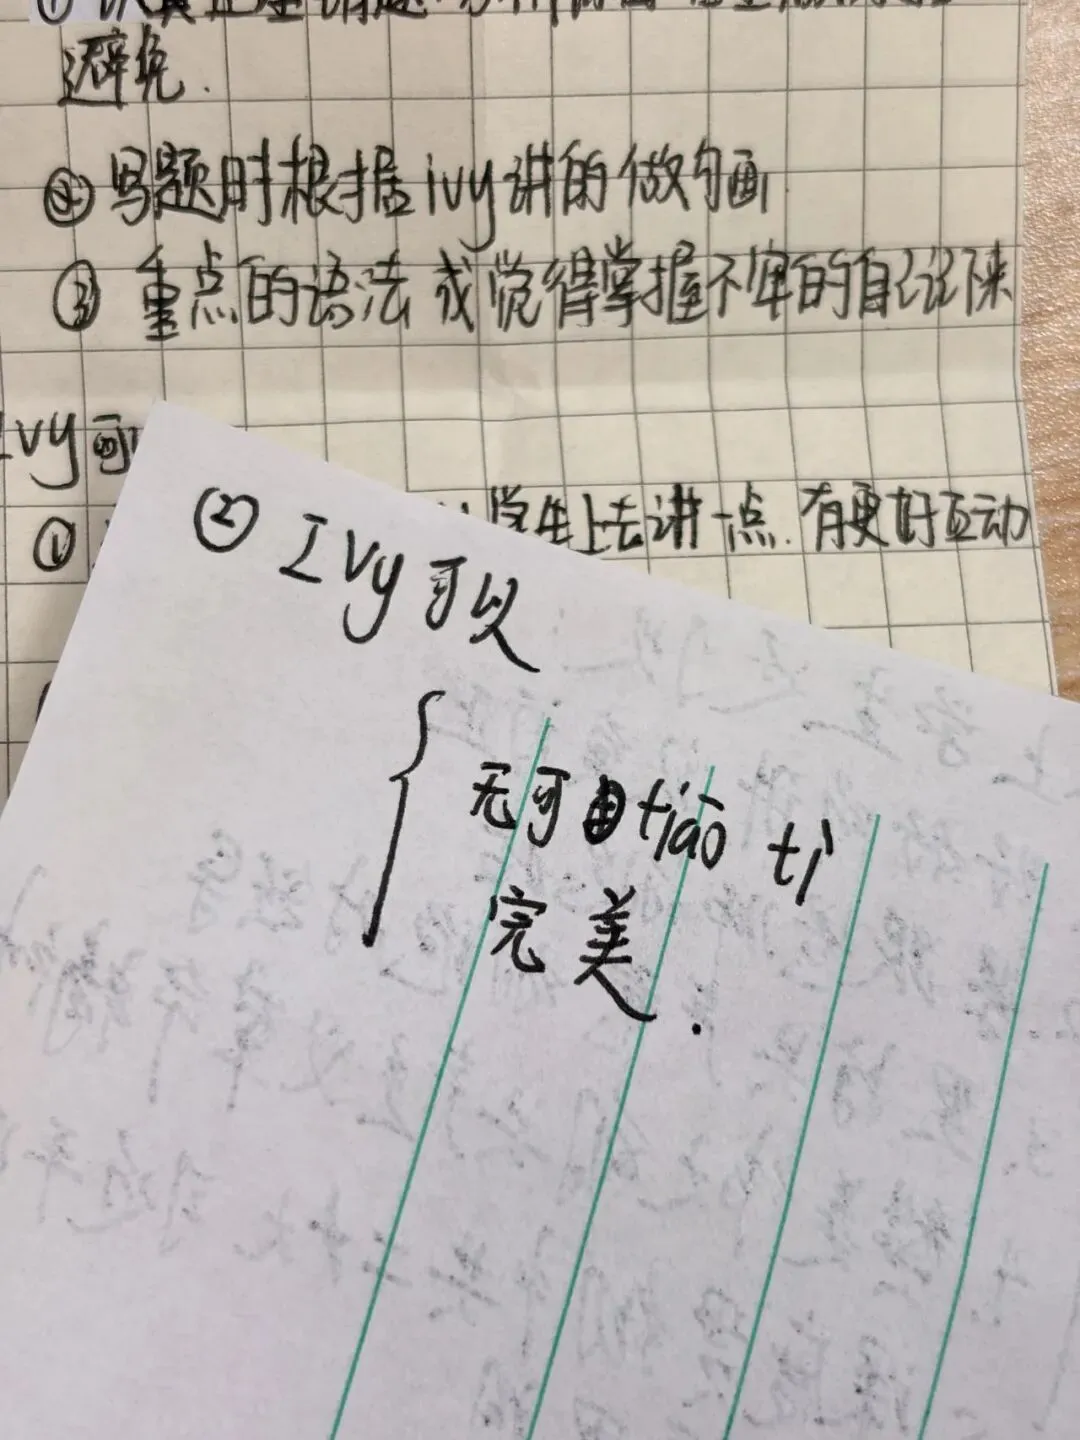 避免.
④写题时根据ivy讲的做勾画
③重点的语法或觉得掌握不牢的自己记下来
Ivy可
① 学生上去讲一点.有更好互动
② Ivy可以
无可tiāo tì
完美.